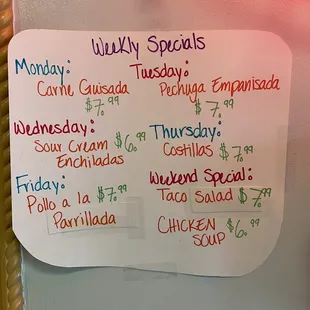 Weekly Specials
Monday:
Carne Guisada
$7.99
Tuesday:
Pechuga Empanisada
$7.99
Wednesday:
Sour Cream $6.99
Enchiladas
Thursday:
Costillas $7.99
Friday:
Pollo a la $7.99
Parrillada
Weekend Special:
Taco Salad $7.99
CHICKEN $6.99
SOUP